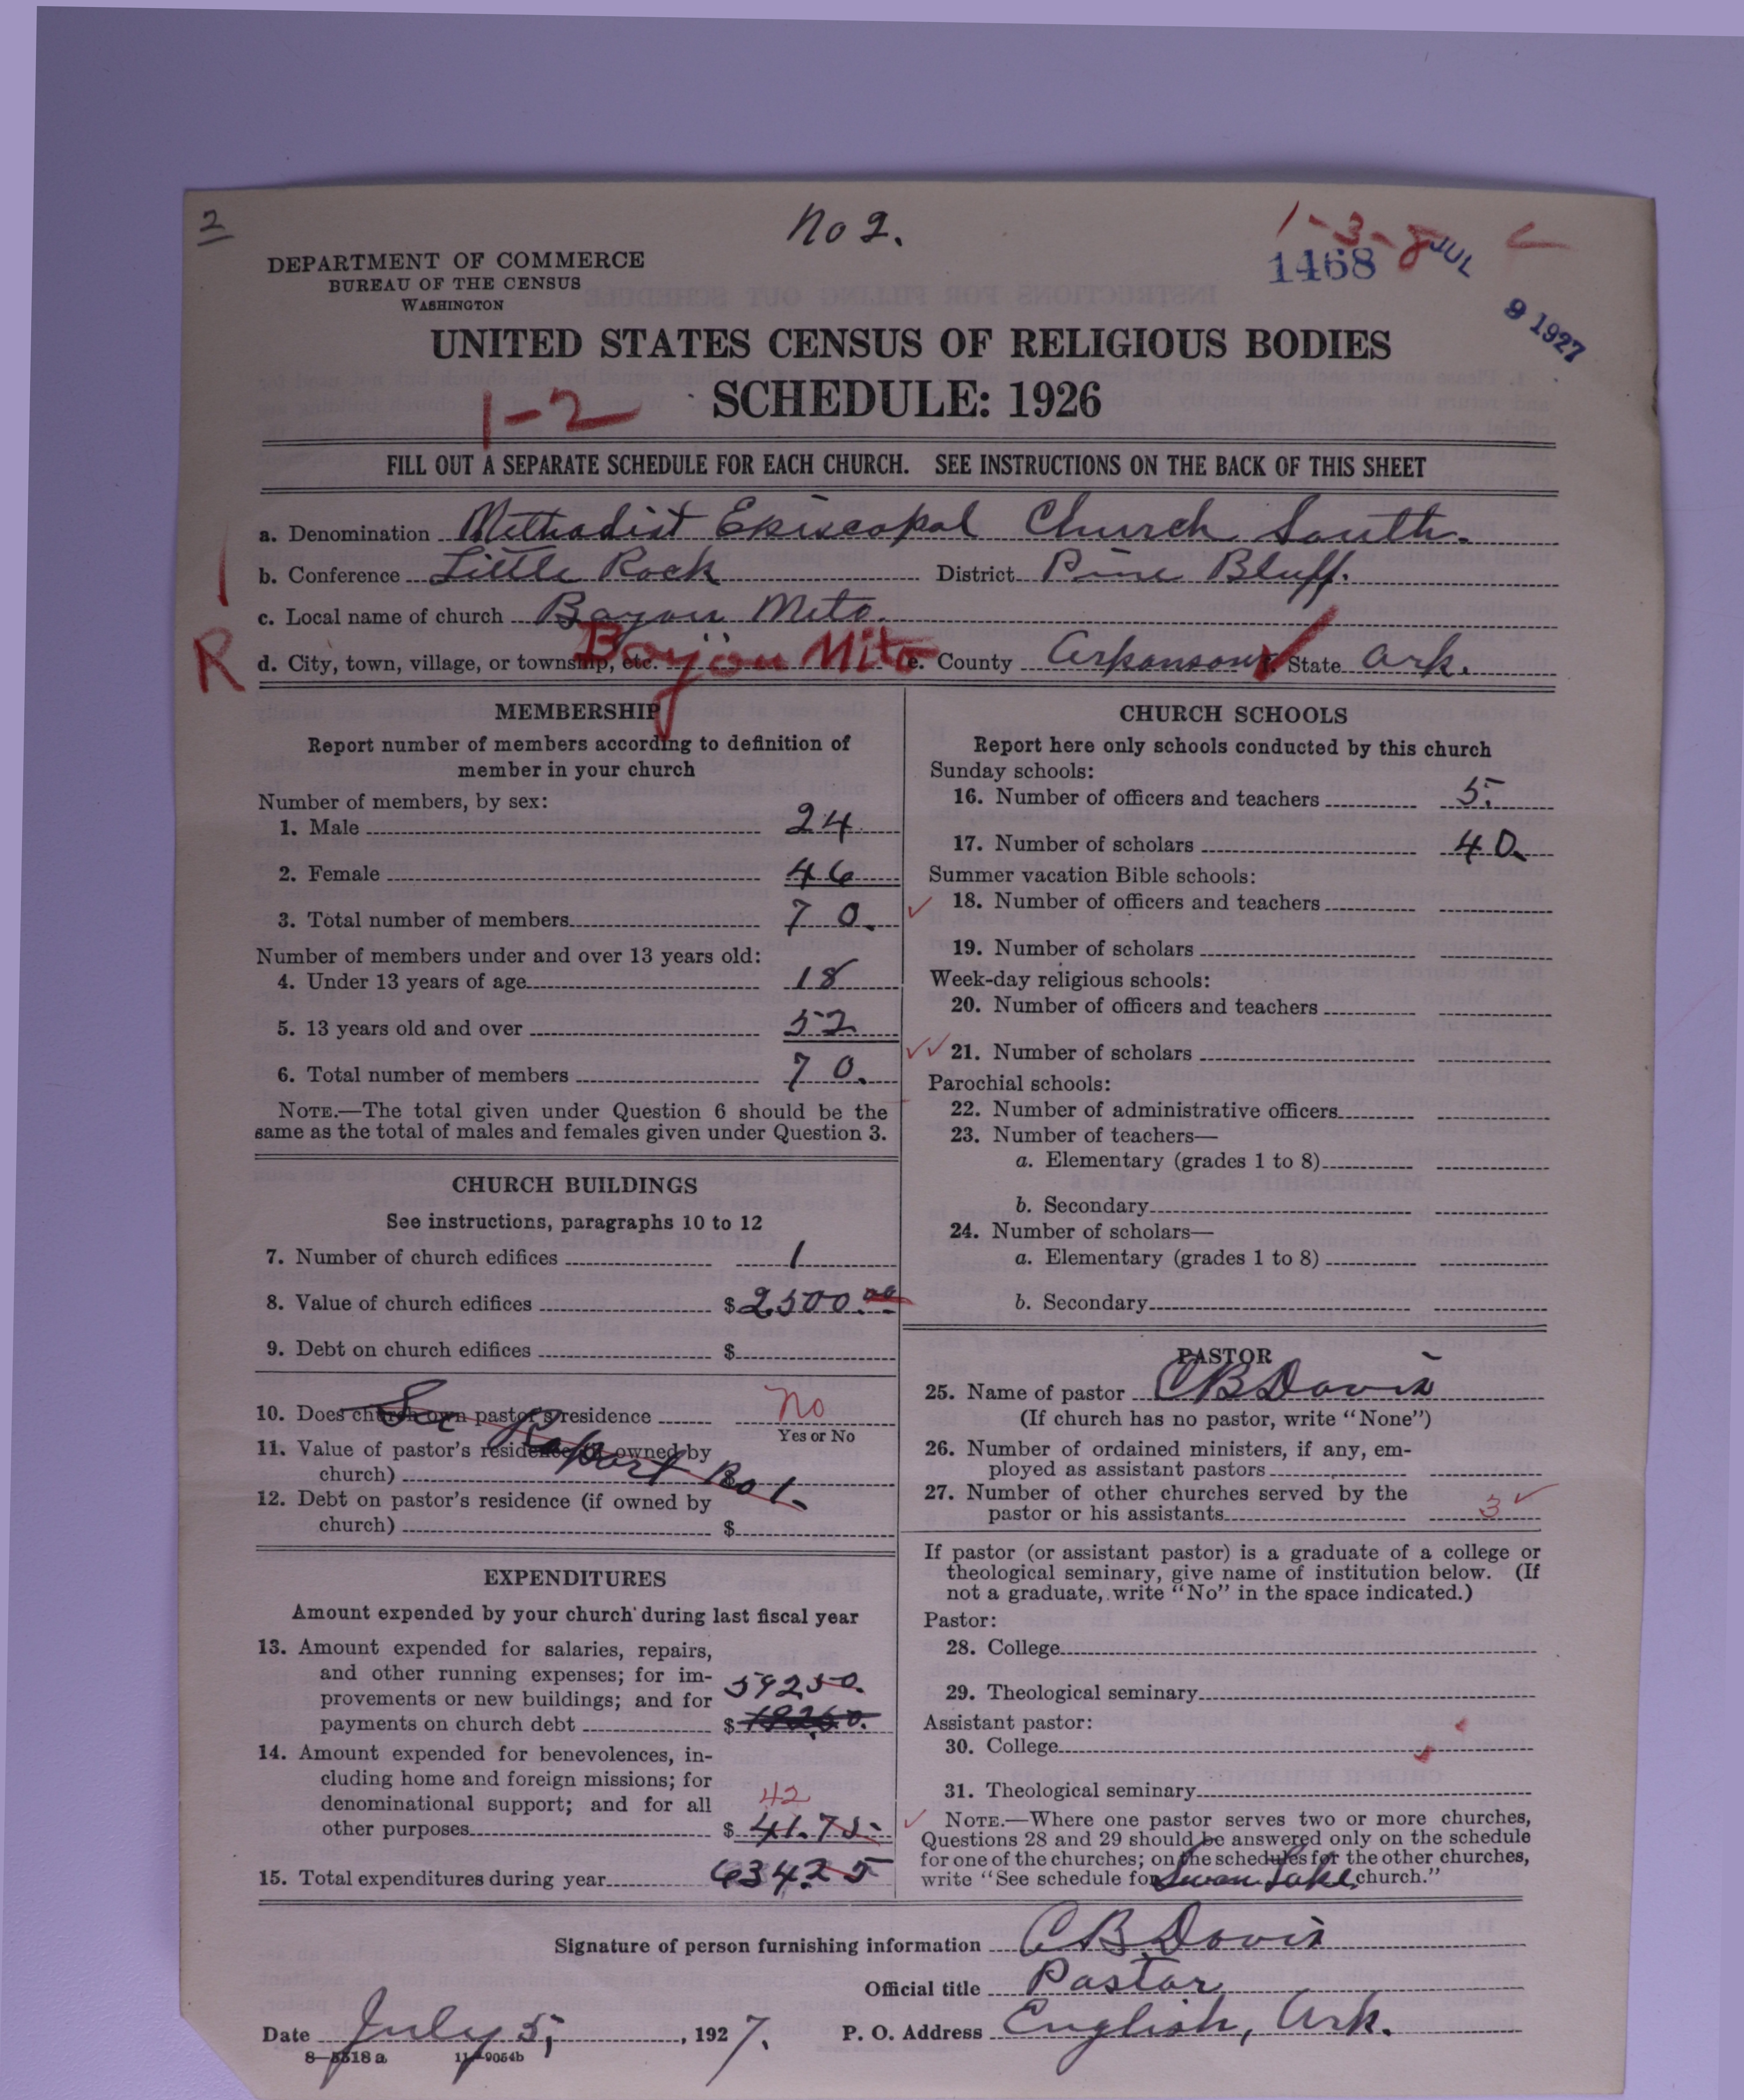 2
No 2.
1-3-8
1468
JUL 9 1927
DEPARTMENT OF COMMERCE
BUREAU OF THE CENSUS
WASHINGTON
UNITED STATES CENSUS OF RELIGIOUS BODIES
SCHEDULE: 1926
1-2
FILL OUT A SEPARATE SCHEDULE FOR EACH CHURCH. SEE INSTRUCTIONS ON THE BACK OF THIS SHEET
a. Denomination Methodist Episcopal Church South.
b. Conference Little Rock District Pine Bluff.
c. Local name of church Bayou Meto.
R
d. City, town, village, or township, etc. Bayou Mito e. County Arkansas f. State Ark.
MEMBERSHIP
Report number of members according to definition of
member in your church
Number of members, by sex:
1. Male 24
2. Female 46
3. Total number of members 70.
Number of members under and over 13 years old:
4. Under 13 years of age 18
5. 13 years old and over 52
6. Total number of members 70.
NOTE.—The total given under Question 6 should be the
same as the total of males and females given under Question 3.
CHURCH BUILDINGS
See instructions, paragraphs 10 to 12
7. Number of church edifices 1
8. Value of church edifices $2,500.00
9. Debt on church edifices $
10. Does church own pastor's residence No
Yes or No
See Report No 1.
11. Value of pastor's residence (if owned by
church) $
12. Debt on pastor's residence (if owned by
church) $
EXPENDITURES
Amount expended by your church during last fiscal year
13. Amount expended for salaries, repairs,
and other running expenses; for im-
provements or new buildings; and for
payments on church debt $ 592 50.
14. Amount expended for benevolences, in-
cluding home and foreign missions; for
denominational support; and for all
other purposes $ 41.75
42
15. Total expenditures during year 634.25
CHURCH SCHOOLS
Report here only schools conducted by this church
Sunday schools:
16. Number of officers and teachers 5.
17. Number of scholars 40.
Summer vacation Bible schools:
18. Number of officers and teachers
19. Number of scholars
Week-day religious schools:
20. Number of officers and teachers
21. Number of scholars
Parochial schools:
22. Number of administrative officers
23. Number of teachers—
a. Elementary (grades 1 to 8)
b. Secondary
24. Number of scholars—
a. Elementary (grades 1 to 8)
b. Secondary
PASTOR
25. Name of pastor C B Davis
(If church has no pastor, write "None")
26. Number of ordained ministers, if any, em-
ployed as assistant pastors
27. Number of other churches served by the
pastor or his assistants 3
If pastor (or assistant pastor) is a graduate of a college or
theological seminary, give name of institution below. (If
not a graduate, write "No" in the space indicated.)
Pastor:
28. College
29. Theological seminary
Assistant pastor:
30. College
31. Theological seminary
NOTE.—Where one pastor serves two or more churches,
Questions 28 and 29 should be answered only on the schedule
for one of the churches; on the schedules for the other churches,
write "See schedule for Swan Lake church."
Signature of person furnishing information C B Davis
Official title Pastor
Date July 5, 1927. P. O. Address English, Ark.
8—5518 a 11—9054b